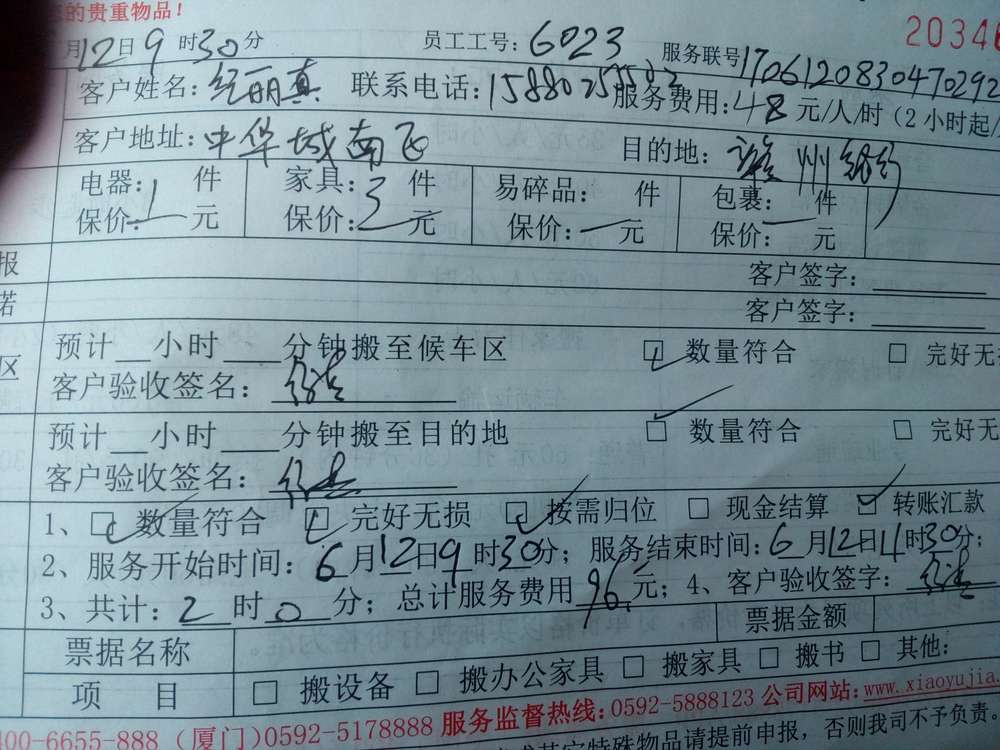 的贵重物品!
月12日9时30分 员工工号:6023 服务联号 1706120830470292
客户姓名: 联系电话: 服务费用:48元/人/时(2小时起/
客户地址:中华城南 目的地: 州
电器:1件 家具:3件 易碎品: 件 包裹: 件
保价:元 保价:元 保价:元 保价:元
报 客户签字:
诺 客户签字:
预计__小时____分钟搬至候车区 ☑ 数量符合 □ 完好无
区 客户验收签名:
预计__小时____分钟搬至目的地 ☑ 数量符合 □ 完好无
客户验收签名:
1、☑ 数量符合 ☑ 完好无损 ☑ 按需归位 □ 现金结算 ☑ 转账汇款
2、服务开始时间:6月12日9时30分;服务结束时间:6月12日11时30分;
3、共计:2时0分;总计服务费用96元;4、客户验收签字:
票据名称 票据金额
项 目 □ 搬设备 □ 搬办公家具 □ 搬家具 □ 搬书 □ 其他:
00-6655-888 (厦门)0592-5178888 服务监督热线:0592-5888123 公司网站:www.xiaoyujia.
特殊物品请提前申报,否则我司不予负责。